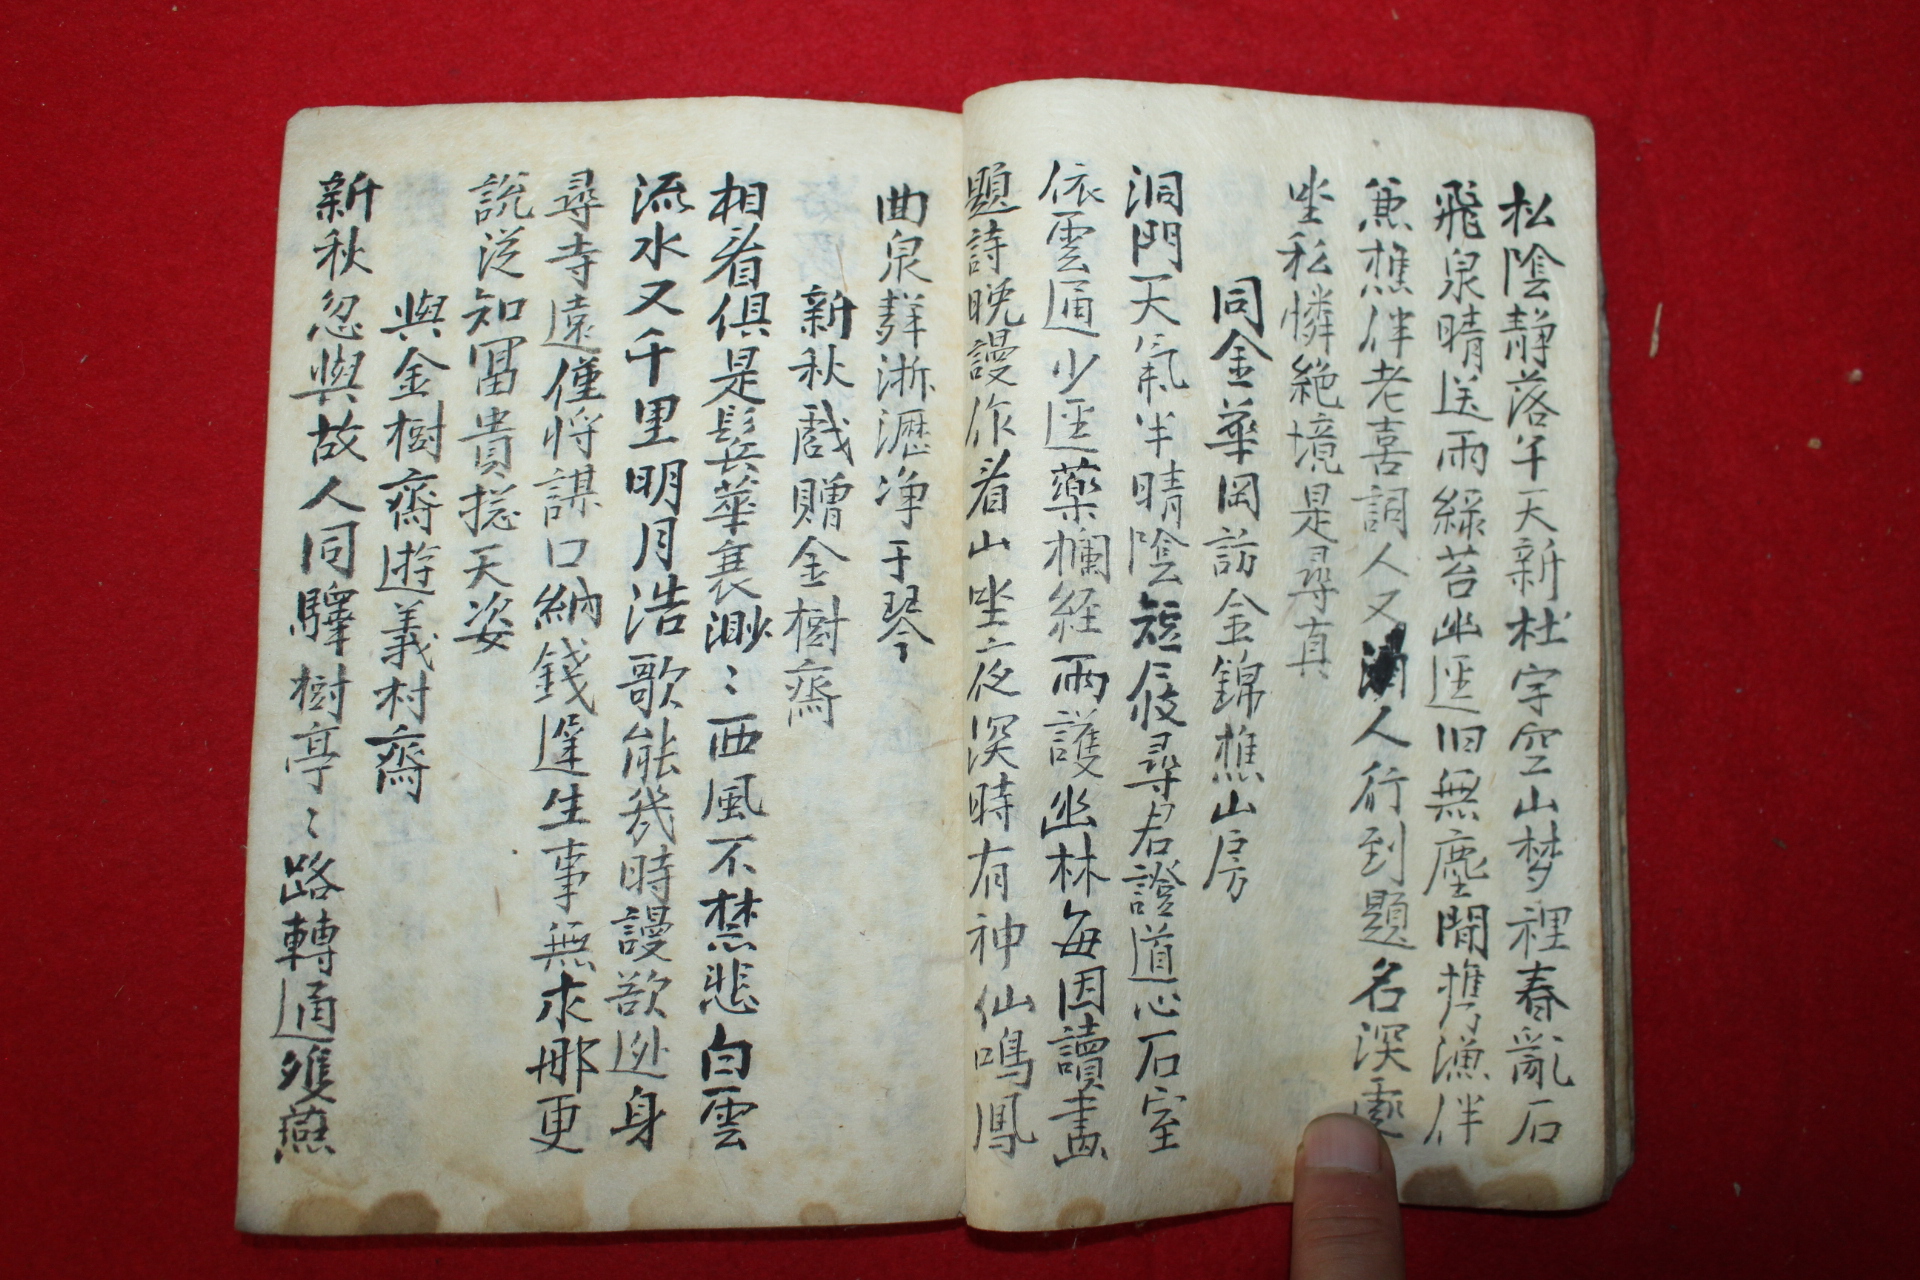 松陰静落半天新杜宇空山梦裡春亂石
飛泉晴送雨綠苔幽逕旧無塵閒携漁伴
兼樵伴老喜詞人又人行到題名深處
坐私憐絶境是尋真
同金華岡訪金錦樵山房
洞門天氣半晴陰短屐尋君證道心石室
依雲通少逕藥欄経雨護幽林每因讀畵
題詩晩謾作看山坐夜深時有神仙鳴鳳
曲泉聲淅瀝净于琴
新秋戱贈金樹齋
相看俱是鬂華衰渺〻西風不禁悲白雲
流水又千里明月浩歌能幾時謾欲逃身
尋寺遠僅将謀口納錢遲生事無求那更
說從知冨貴捴天姿
與金樹齋遊義村齋
新秋忽與故人同驛樹亭〻路轉通雙燕